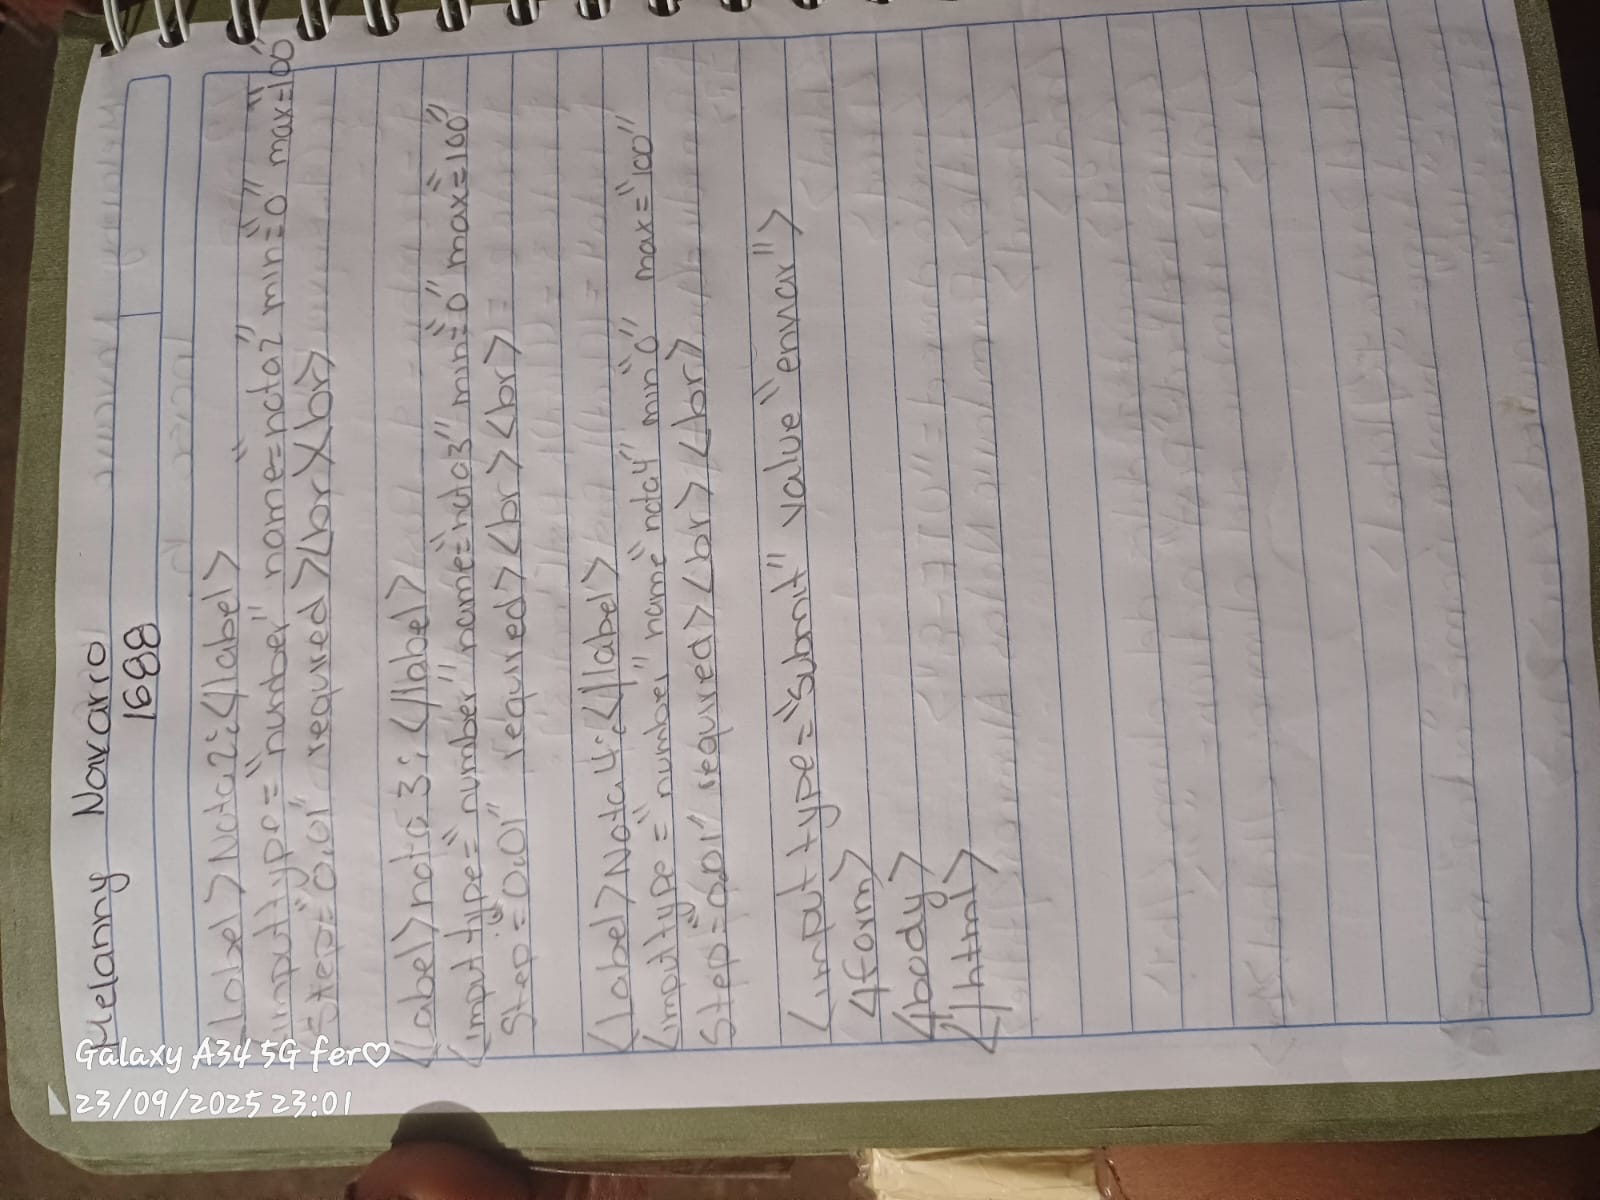 Melanny Navarro
1688
<label>Nota2:</label>
<input type="number" name=nota2" min="0" max="100"
Step="0.01" required><br><br>
<label>nota3:</label>
<input type="number" name="nota3" min="0" max="100"
Step="0.01" required><br><br>
<label>Nota4:</label>
<input type="number" name"nota4" min"0" max="100"
Step="0.01" required><br><br>
<input type="Submit" value"enviar">
</form>
</body>
</html>
Galaxy A34 5G fer♡
23/09/2025 23:01